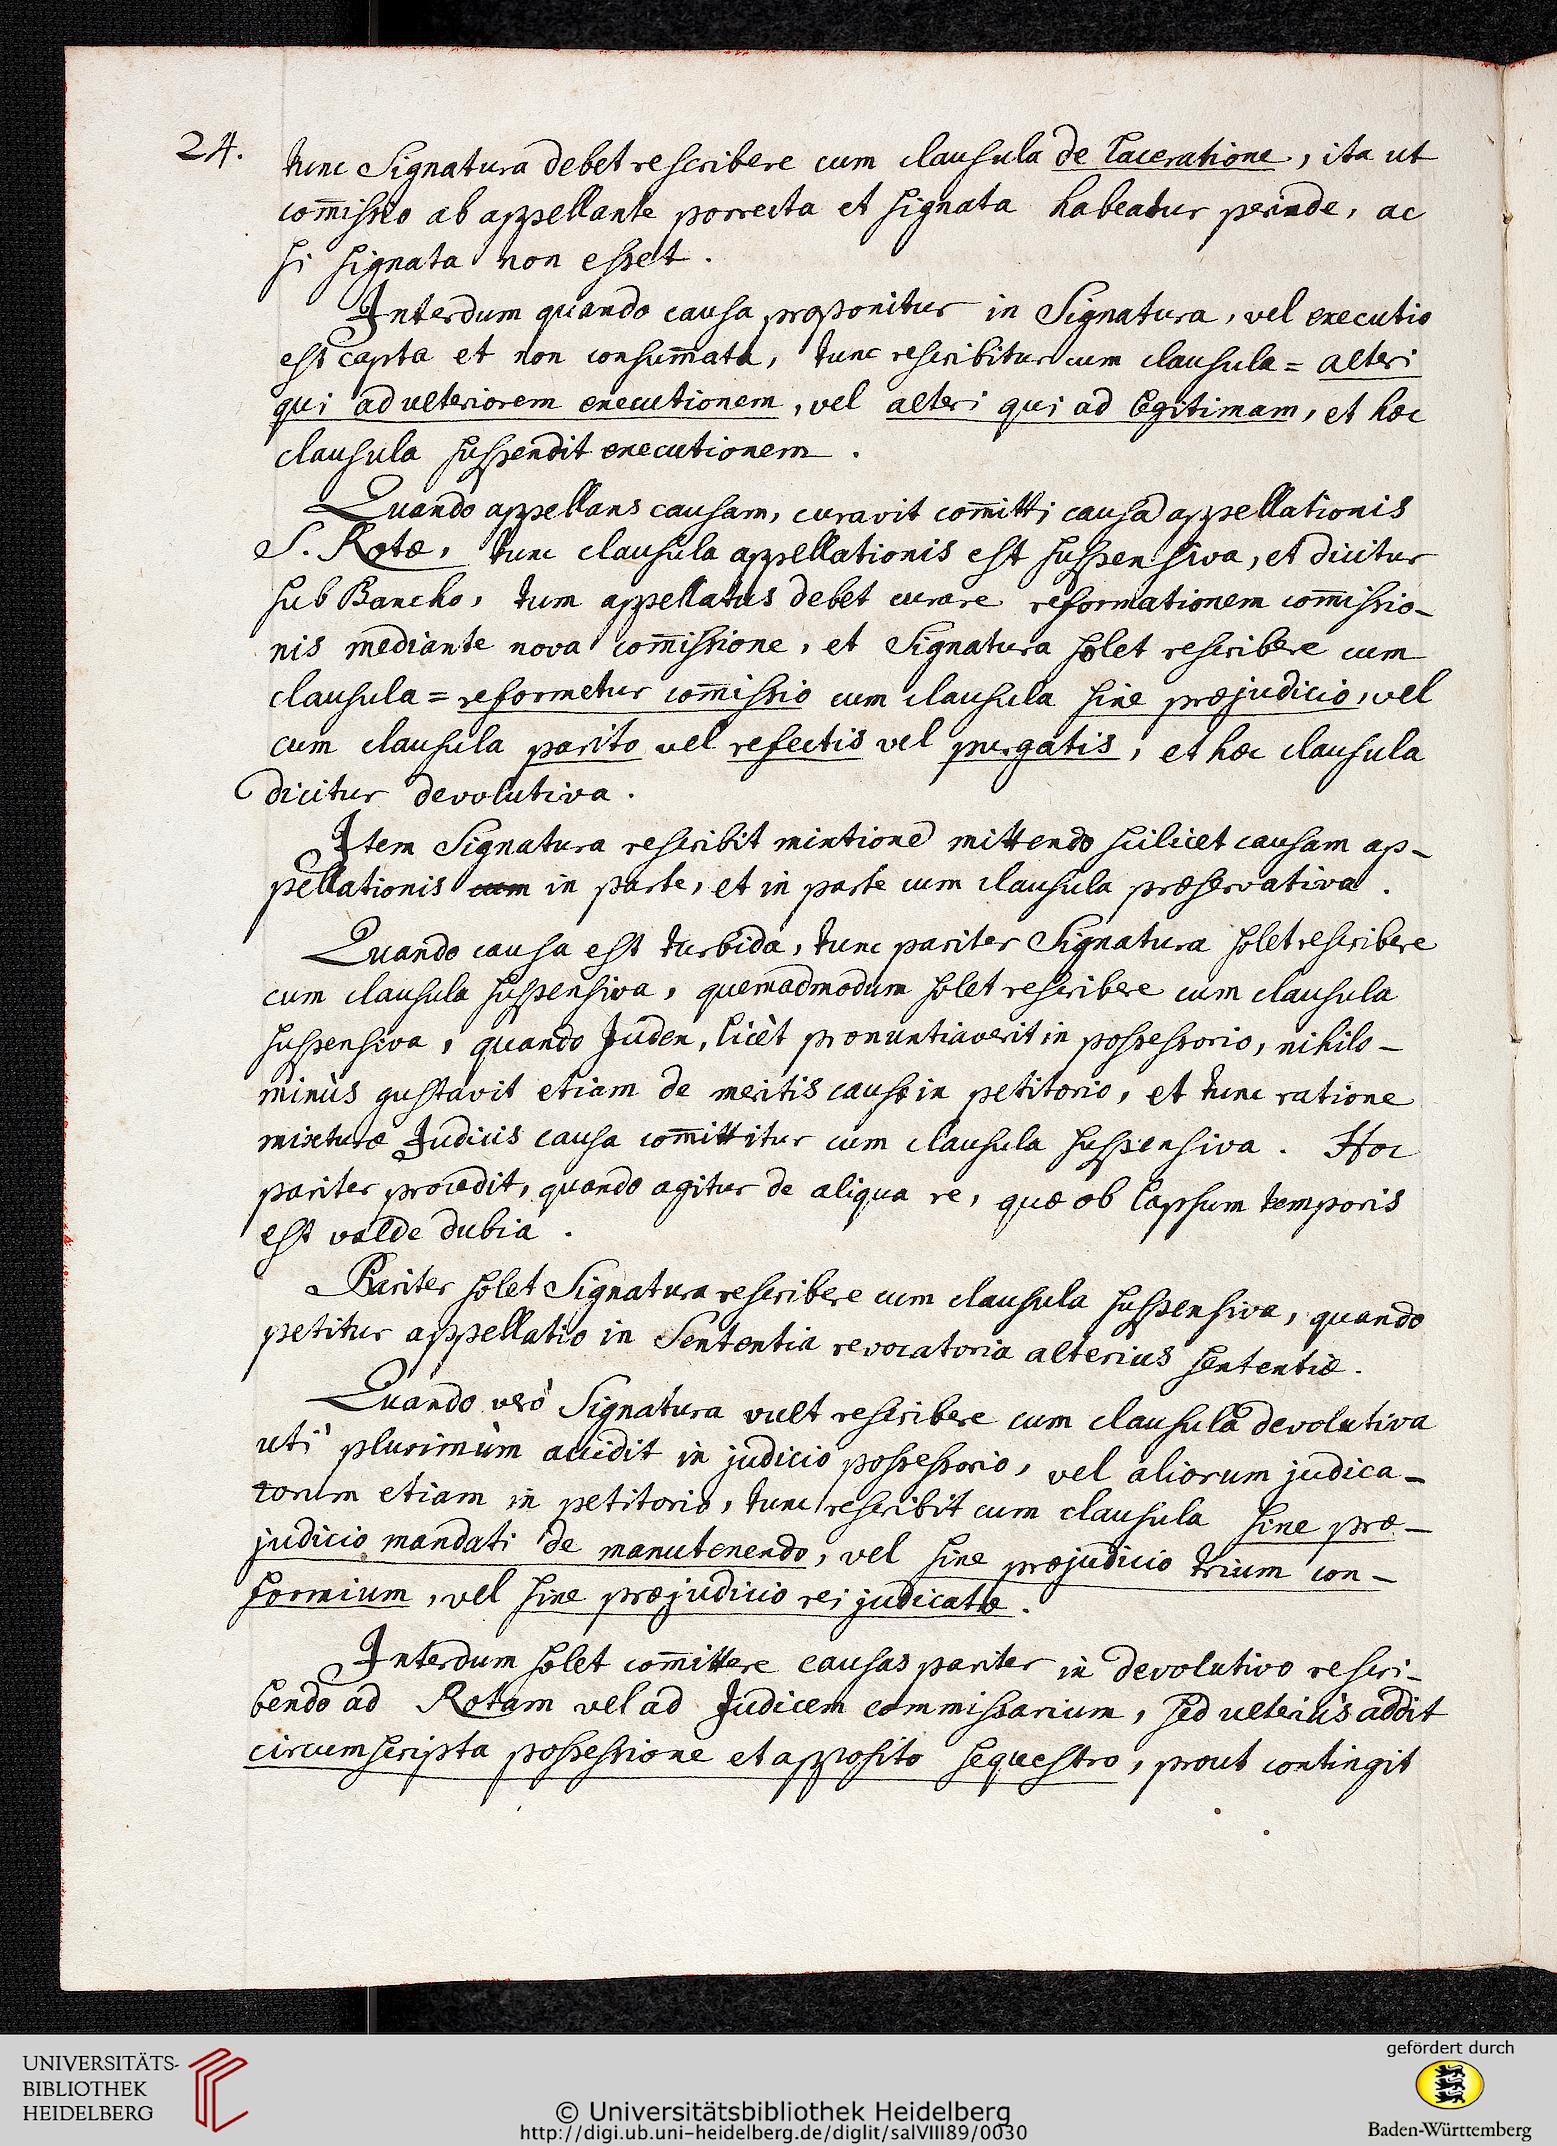 24.
tunc Signatura debet rescribere cum clausula de laceratione, ita ut
com̄issio ab appellante porrecta et signata habeatur perinde, ac
si signata non esset.
Interdum quando causa proponitur in Signatura, vel executio
est capta et non consum̄ata, tunc rescribitur cum clausula = alteri
qui ad ulteriorem executionem, vel alteri qui ad legitimam, et hæc
clausula suspendit executionem.
Quando appellans causam, curavit com̄itti causa appellationis
S. Rotæ, tunc clausula appellationis est suspensiva, et dicitur
sub Bancho, tum appellatus debet curare reformationem com̄issio-
nis mediante nova com̄issione, et Signatura solet rescribere cum
clausula = reformetur com̄issio cum clausula sine præjudicio, vel
cum clausula parito vel refectis vel purgatis, et hæc clausula
dicitur devolutiva.
Item Signatura rescribit mixtione mittendo scilicet causam ap-
pellationis cum in parte, et in parte cum clausula præservativa.
Quando causa est turbida, tunc pariter Signatura solet rescribere
cum clausula suspensiva, quemadmodum solet rescribere cum clausula
suspensiva, quando Judex, licèt pronuntiaverit in possessorio, nihilo-
minùs gustavit etiam de meritis causæ in petitorio, et tunc ratione
mixturæ Judicis causa com̄ittitur cum clausula suspensiva. Hoc
pariter procedit, quando agitur de aliqua re, quæ ob lapsum temporis
est valde dubia.
Pariter solet Signatura rescribere cum clausula suspensiva, quando
petitur appellatio in Sententia revocatoria alterius sententiæ.
Quando verò Signatura vult rescribere cum clausula devolutiva
utì plurimùm accidit in judicio possessorio, vel aliorum judica-
torum etiam in petitorio, tunc rescribit cum clausula sine præ-
judicio mandati de manutenendo, vel sine præjudicio trium con-
formium, vel sine præjudicio rei judicatæ.
Interdum solet com̄ittere causas pariter in devolutivo rescri-
bendo ad Rotam vel ad Judicem commissarium, sed ulteriùs addit
circumscripta possessione et apposito sequestro, prout contingit
UNIVERSITÄTS-
BIBLIOTHEK
HEIDELBERG
© Universitätsbibliothek Heidelberg
http://digi.ub.uni-heidelberg.de/diglit/salVIII89/0030
gefördert durch
Baden-Württemberg